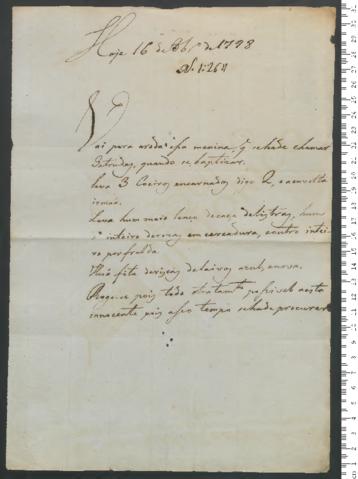 Hoje 16 de Abr.º de 1798
N. 1:264
Vai para a roda esta menina, q̃ se hade chamar
Getrudas, quando se baptizar.
Leva 3 Coeiros encarnados digo 2, e a envolta
irmão.
Leva hum mais lenço de caça de listras, hum
inteiro de riscas em cercadura, e outro intei-
ro por fralda.
Huã fita de riscas de laivos azul, e nova.
Roga-se pois todo o tratam.to possivel a esta
innocente pois a seo tempo se hade procurar